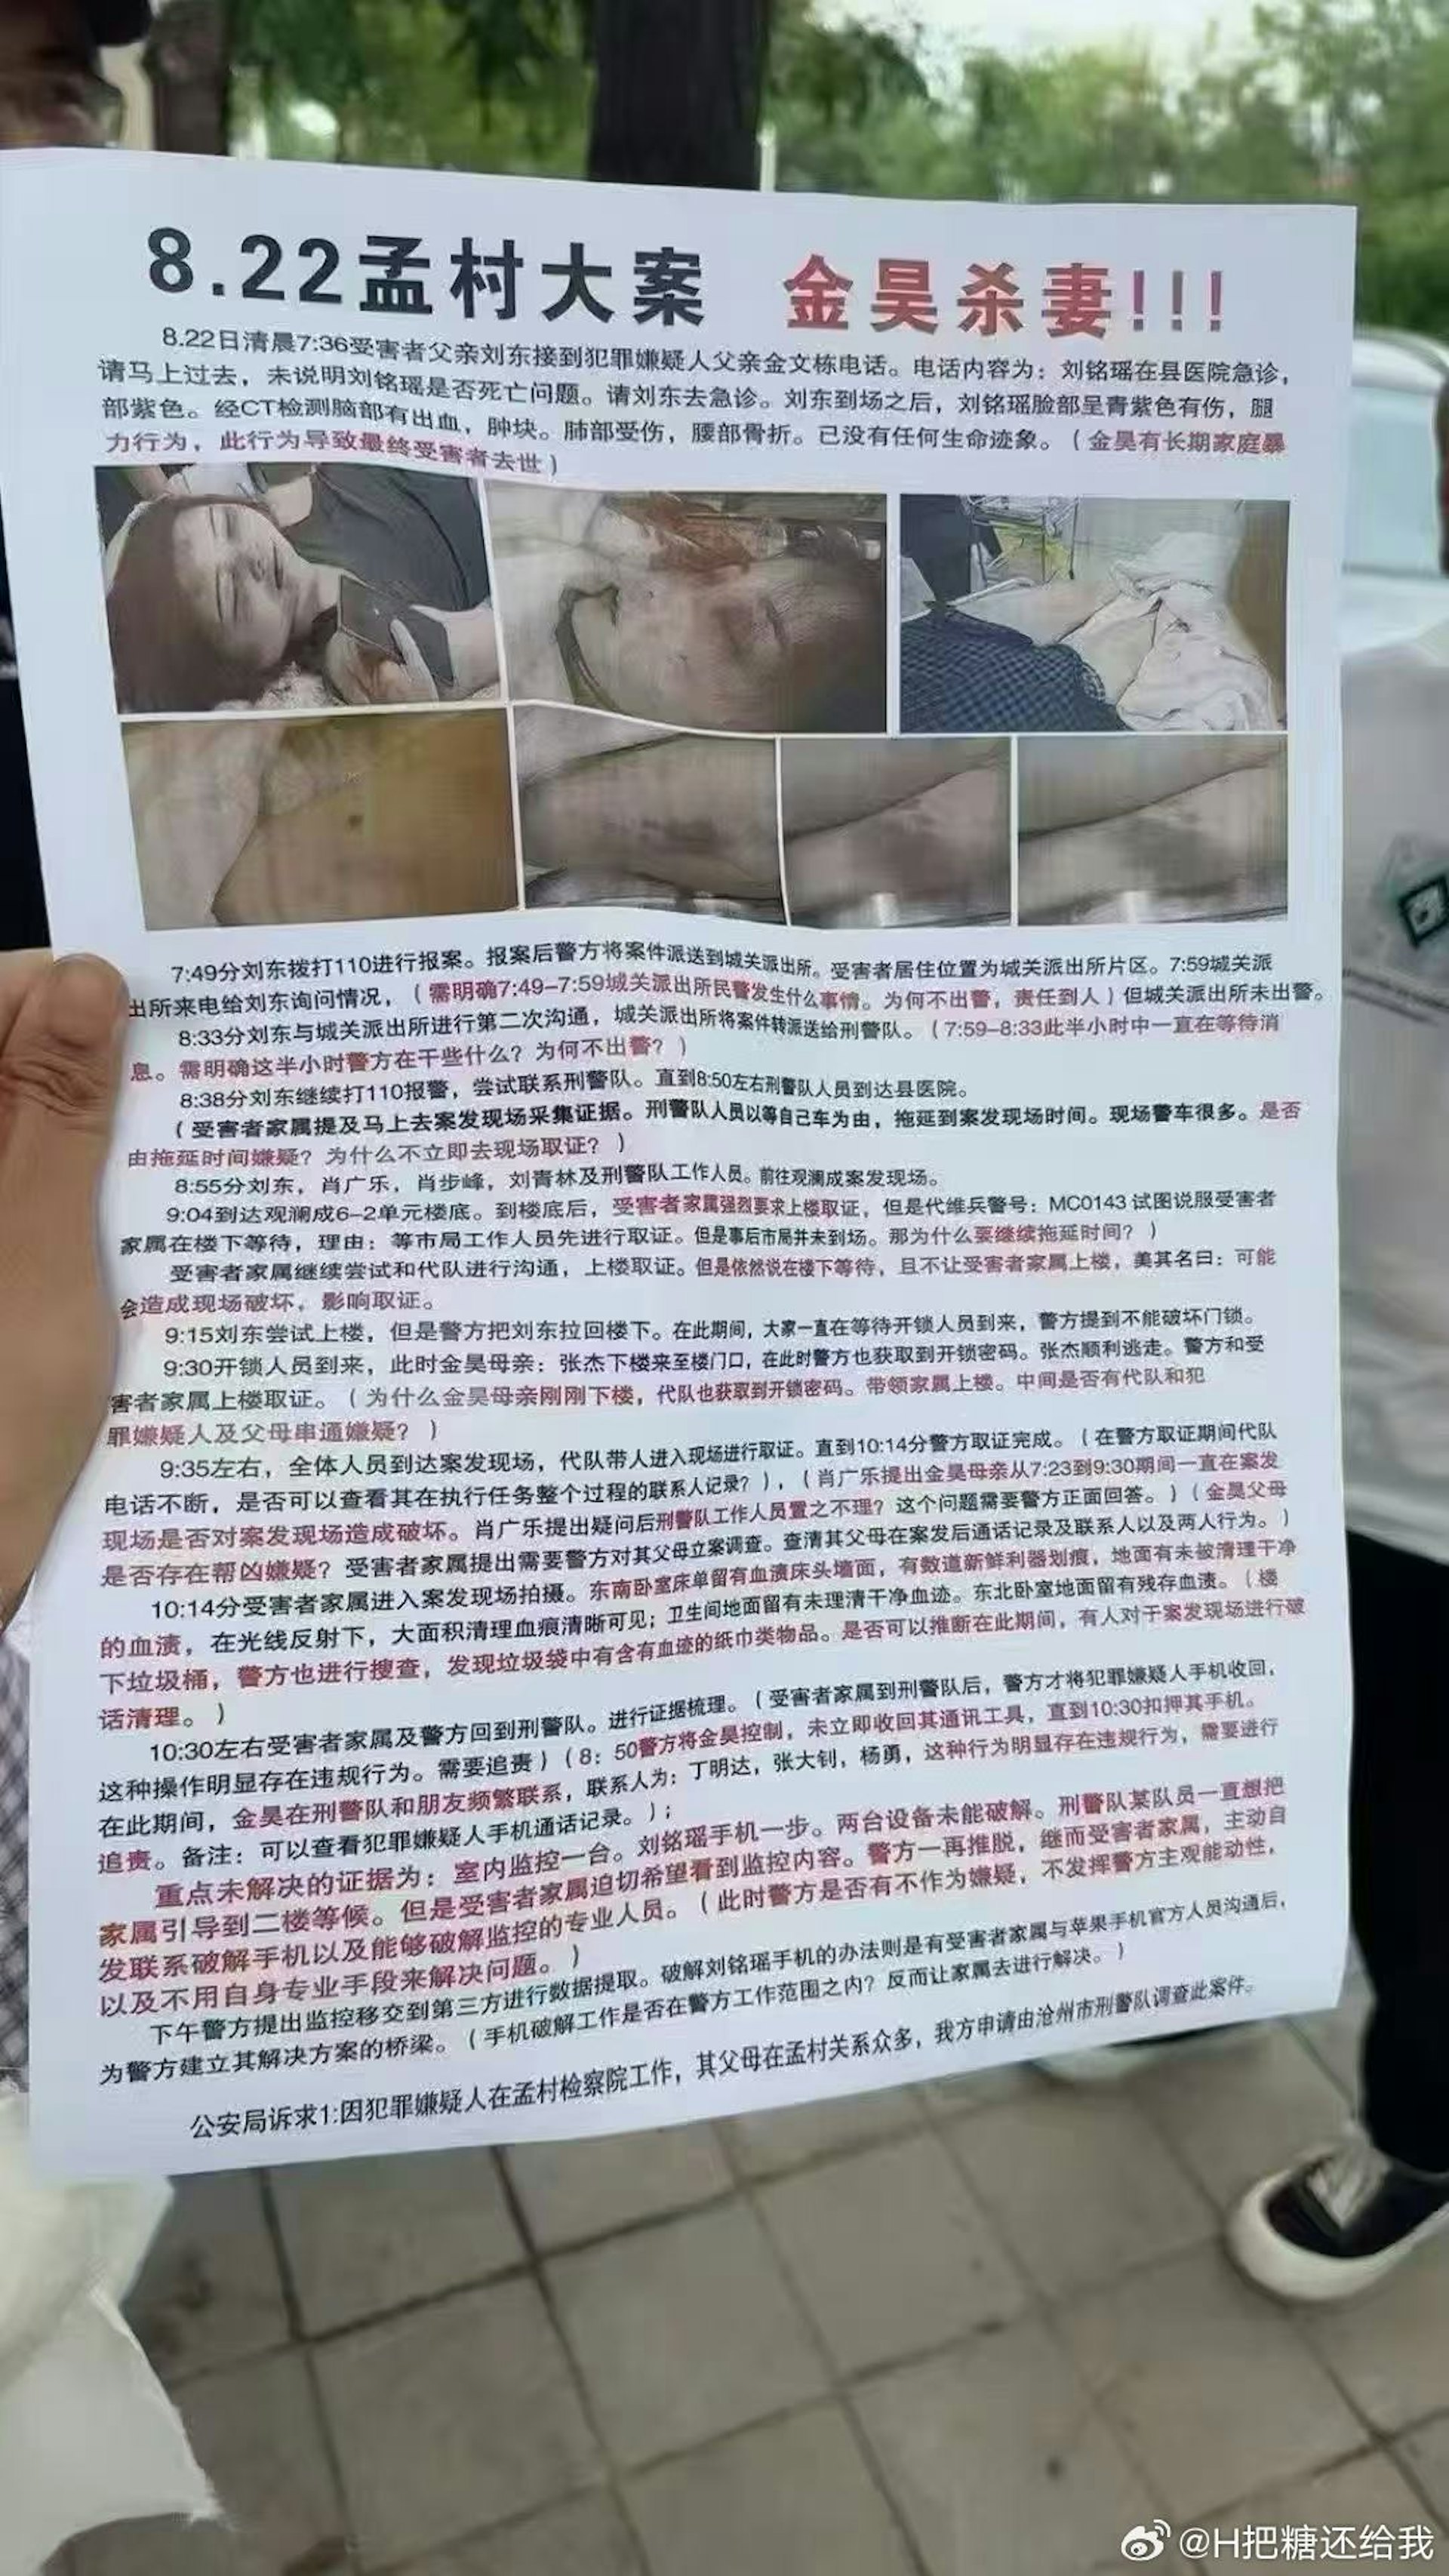 8.22孟村大案 金昊杀妻!!!
8.22日清晨7:36受害者父亲刘东接到犯罪嫌疑人父亲金文栋电话。电话内容为：刘铭瑶在县医院急诊，
请马上过去，未说明刘铭瑶是否死亡问题。请刘东去急诊。刘东到场之后，刘铭瑶脸部呈青紫色有伤，腿
部紫色。经CT检测脑部有出血，肿块。肺部受伤，腰部骨折。已没有任何生命迹象。（金昊有长期家庭暴
力行为，此行为导致最终受害者去世）
7:49分刘东拨打110进行报案。报案后警方将案件派送到城关派出所。受害者居住位置为城关派出所片区。7:59城关派
出所来电给刘东询问情况，（需明确7:49-7:59城关派出所民警发生什么事情。为何不出警，责任到人）但城关派出所未出警。
8:33分刘东与城关派出所进行第二次沟通，城关派出所将案件转派送给刑警队。（7:59-8:33此半小时中一直在等待消
息。需明确这半小时警方在干些什么？为何不出警？）
8:38分刘东继续打110报警，尝试联系刑警队。直到8:50左右刑警队人员到达县医院。
（受害者家属提及马上去案发现场采集证据。刑警队人员以等自己车为由，拖延到案发现场时间。现场警车很多。是否
由拖延时间嫌疑？为什么不立即去现场取证？）
8:55分刘东，肖广乐，肖步峰，刘青林及刑警队工作人员。前往观澜成案发现场。
9:04到达观澜成6-2单元楼底。到楼底后，受害者家属强烈要求上楼取证，但是代维兵警号：MC0143试图说服受害者
家属在楼下等待，理由：等市局工作人员先进行取证。但是事后市局并未到场。那为什么要继续拖延时间？）
受害者家属继续尝试和代队进行沟通，上楼取证。但是依然说在楼下等待，且不让受害者家属上楼，美其名曰：可能
会造成现场破坏，影响取证。
9:15刘东尝试上楼，但是警方把刘东拉回楼下。在此期间，大家一直在等待开锁人员到来，警方提到不能破坏门锁。
9:30开锁人员到来，此时金昊母亲：张杰下楼来至楼门口，在此时警方也获取到开锁密码。张杰顺利逃走。警方和受
害者家属上楼取证。（为什么金昊母亲刚刚下楼，代队也获取到开锁密码。带领家属上楼。中间是否有代队和犯
罪嫌疑人及父母串通嫌疑？）
9:35左右，全体人员到达案发现场，代队带人进入现场进行取证。直到10:14分警方取证完成。（在警方取证期间代队
电话不断，是否可以查看其在执行任务整个过程的联系人记录？），（肖广乐提出金昊母亲从7:23到9:30期间一直在案发
现场是否对案发现场造成破坏。肖广乐提出疑问后刑警队工作人员置之不理？这个问题需要警方正面回答。）（金昊父母
是否存在帮凶嫌疑？受害者家属提出需要警方对其父母立案调查。查清其父母在案发后通话记录及联系人以及两人行为。）
10:14分受害者家属进入案发现场拍摄。东南卧室床单留有血渍床头墙面，有数道新鲜利器划痕，地面有未被清理干净
的血渍，在光线反射下，大面积清理血痕清晰可见；卫生间地面留有未理清干净血迹。东北卧室地面留有残存血渍。（楼
下垃圾桶，警方也进行搜查，发现垃圾袋中有含有血迹的纸巾类物品。是否可以推断在此期间，有人对于案发现场进行破
话清理。）
10:30左右受害者家属及警方回到刑警队。进行证据梳理。（受害者家属到刑警队后，警方才将犯罪嫌疑人手机收回，
这种操作明显存在违规行为。需要追责）（8：50警方将金昊控制，未立即收回其通讯工具，直到10:30扣押其手机。
在此期间，金昊在刑警队和朋友频繁联系，联系人为：丁明达，张大钊，杨勇，这种行为明显存在违规行为，需要进行
追责。备注：可以查看犯罪嫌疑人手机通话记录。）；
重点未解决的证据为：室内监控一台。刘铭瑶手机一步。两台设备未能破解。刑警队某队员一直想把
家属引导到二楼等候。但是受害者家属迫切希望看到监控内容。警方一再推脱，继而受害者家属，主动自
发联系破解手机以及能够破解监控的专业人员。（此时警方是否有不作为嫌疑，不发挥警方主观能动性，
以及不用自身专业手段来解决问题。）
下午警方提出监控移交到第三方进行数据提取。破解刘铭瑶手机的办法则是有受害者家属与苹果手机官方人员沟通后，
为警方建立其解决方案的桥梁。（手机破解工作是否在警方工作范围之内？反而让家属去进行解决。）
公安局诉求1:因犯罪嫌疑人在孟村检察院工作，其父母在孟村关系众多，我方申请由沧州市刑警队调查此案件。
@H把糖还给我